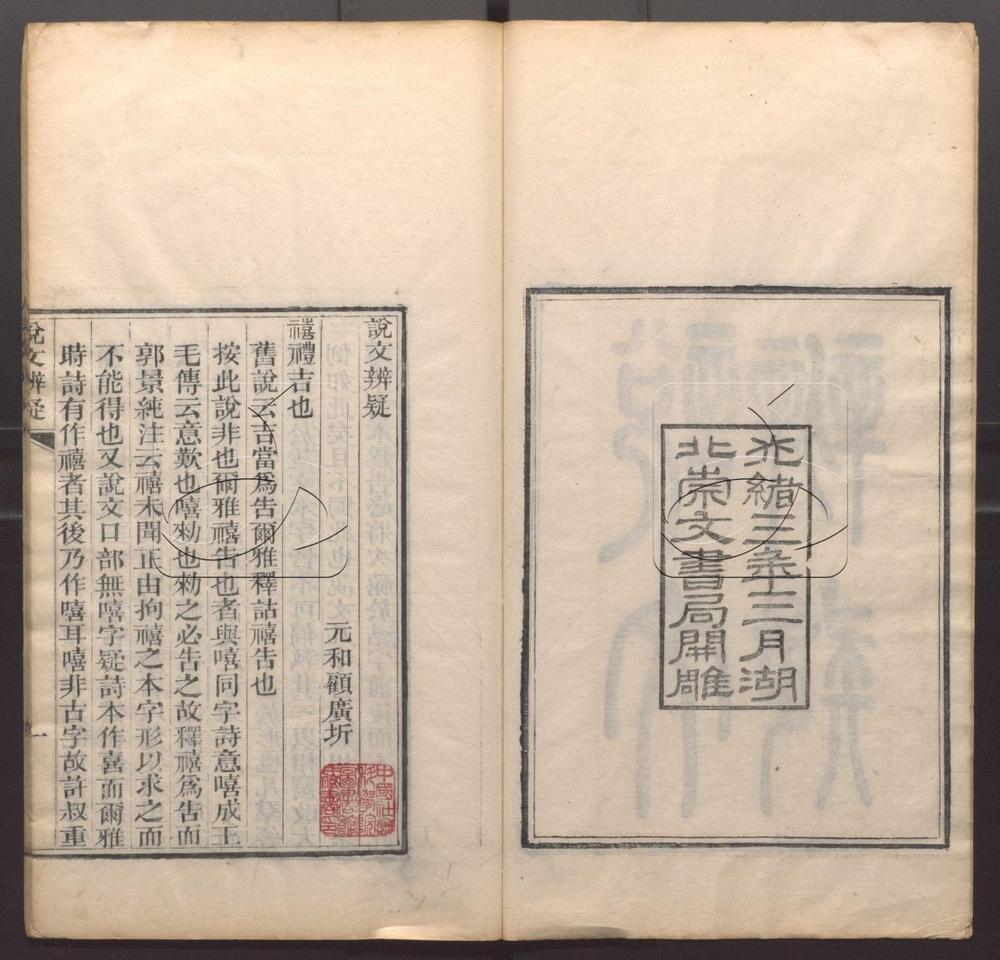 光緒三年三月湖
北崇文書局開雕
說文辨疑
元和顧廣圻
禧禮吉也
舊說云吉當爲告爾雅釋詁禧告也
按此說非也爾雅禧告也者與嘻同字詩意嘻成王
毛傳云意歎也嘻勑也勑之必告之故釋禧爲告而
郭景純注云禧未聞正由拘禧之本字形以求之而
不能得也又說文口部無嘻字疑詩本作喜而爾雅
時詩有作禧者其後乃作嘻耳嘻非古字故許叔重
說文辨疑
一